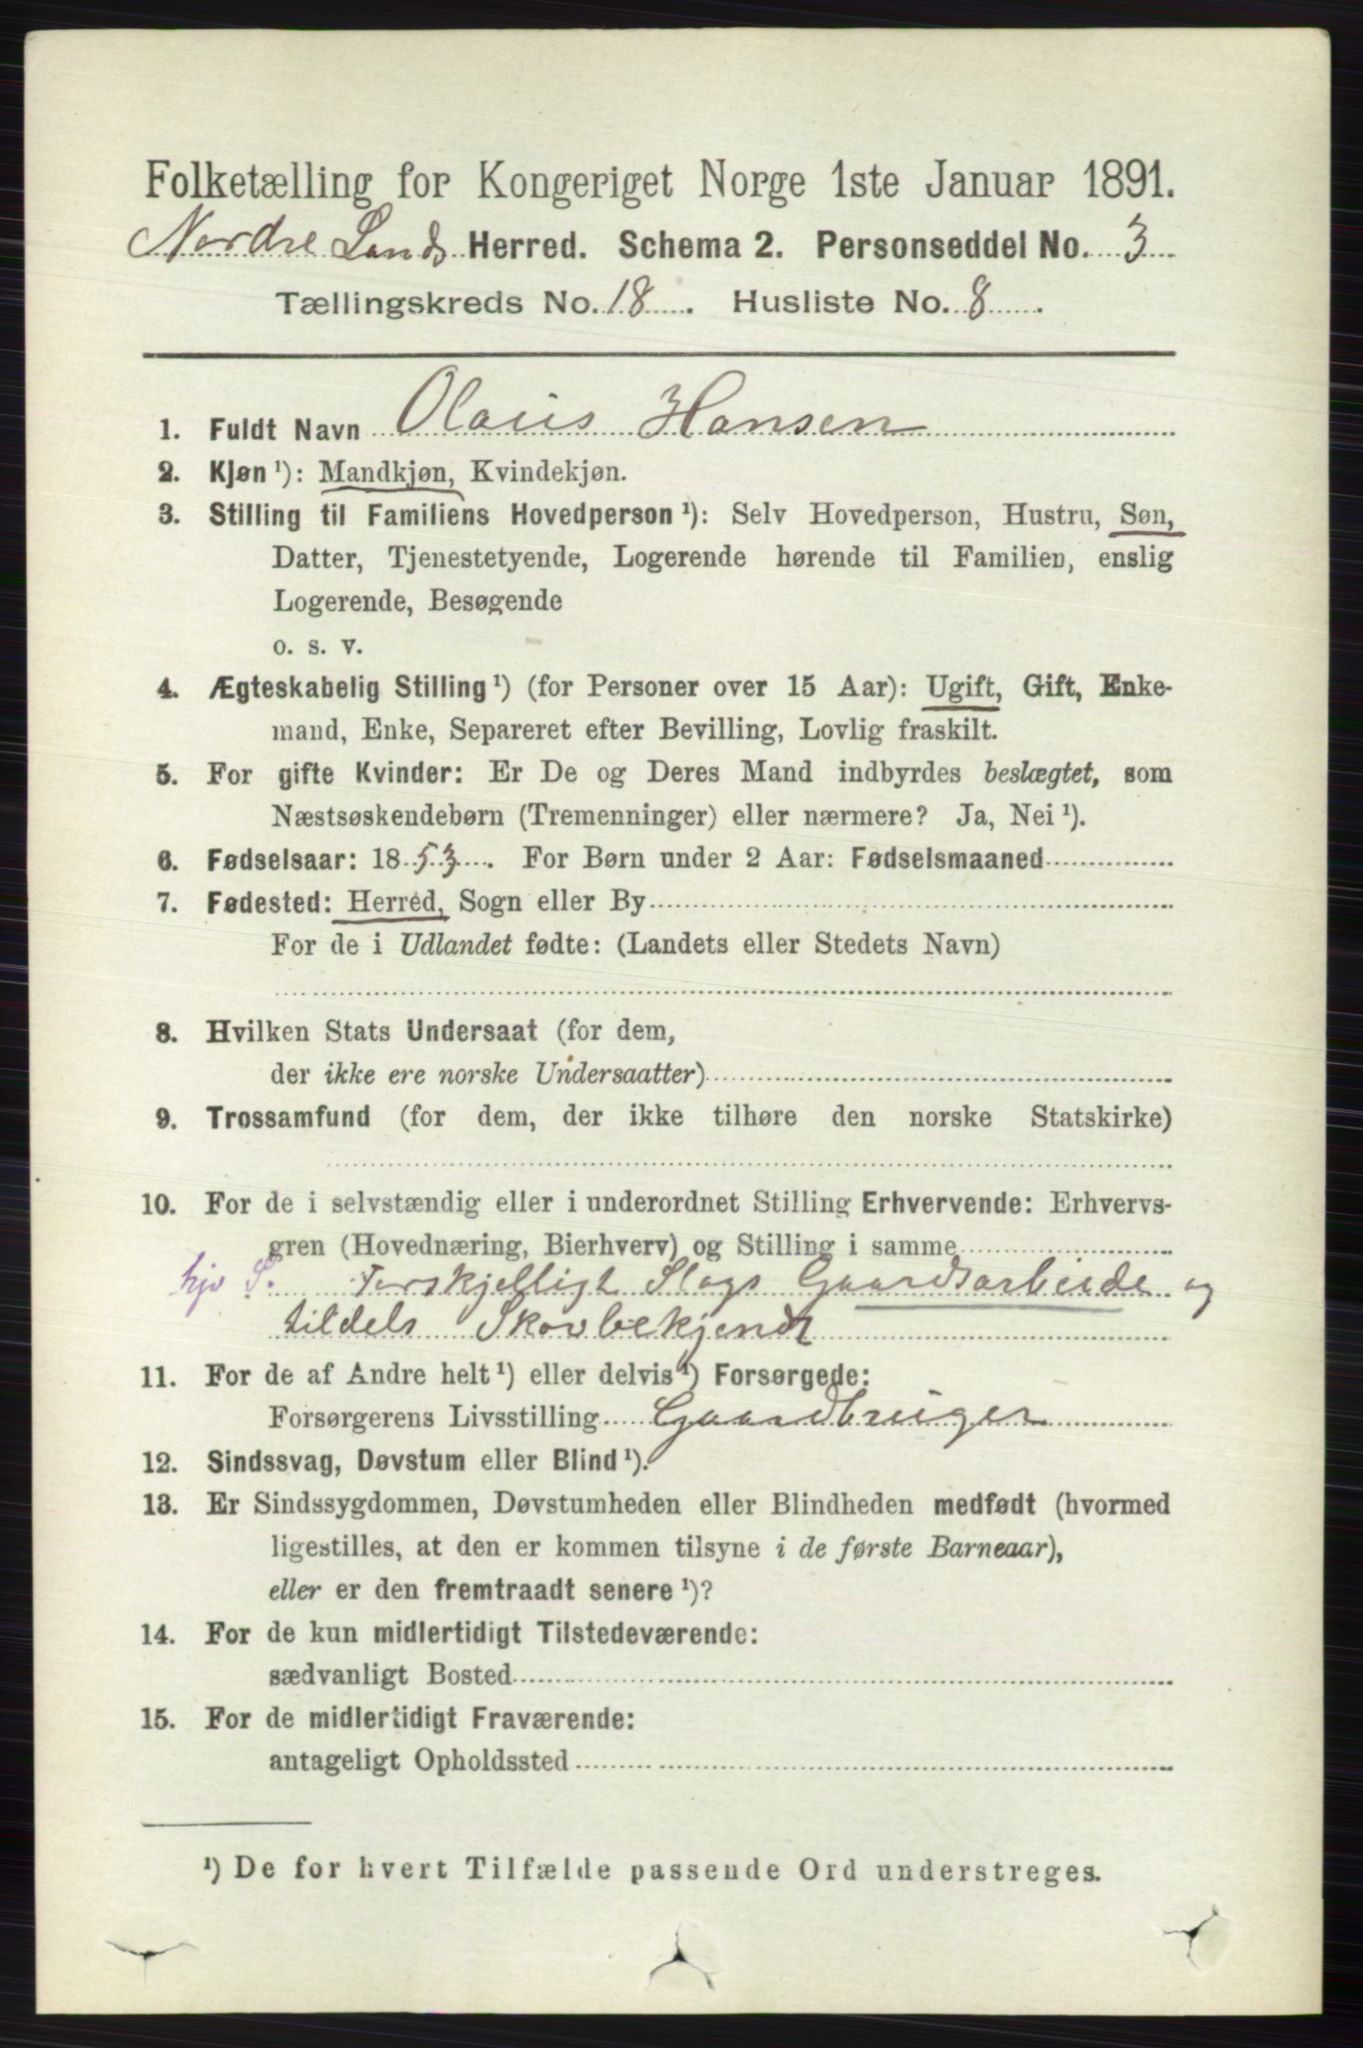 Folketælling for Kongeriget Norge 1ste Januar 1891.
Nordre Lands Herred. Schema 2. Personseddel No. 3
Tællingskreds No. 18. Husliste No. 8.
1. Fuldt Navn Olaus Hansen
2. Kjøn ¹): Mandkjøn, Kvindekjøn.
3. Stilling til Familiens Hovedperson ¹): Selv Hovedperson, Hustru, Søn,
Datter, Tjenestetyende, Logerende hørende til Familien, enslig
Logerende, Besøgende
o. s. v.
4. Ægteskabelig Stilling ¹) (for Personer over 15 Aar): Ugift, Gift, Enke-
mand, Enke, Separeret efter Bevilling, Lovlig fraskilt.
5. For gifte Kvinder: Er De og Deres Mand indbyrdes beslægtet, som
Næstsøskendebørn (Tremenninger) eller nærmere? Ja, Nei ¹).
6. Fødselsaar: 1853. For Børn under 2 Aar: Fødselsmaaned
7. Fødested: Herred, Sogn eller By
For de i Udlandet fødte: (Landets eller Stedets Navn)
8. Hvilken Stats Undersaat (for dem,
der ikke ere norske Undersaatter)
9. Trossamfund (for dem, der ikke tilhøre den norske Statskirke)
10. For de i selvstændig eller i underordnet Stilling Erhvervende: Erhvervs-
gren (Hovednæring, Bierhverv) og Stilling i samme
hjv S. Forskjelligt Slags Gaardsarbeide og
tildels Skov
11. For de af Andre helt ¹) eller delvis ¹) Forsørgede:
Forsørgerens Livsstilling Gaardbruger
12. Sindssvag, Døvstum eller Blind ¹).
13. Er Sindssygdommen, Døvstumheden eller Blindheden medfødt (hvormed
ligestilles, at den er kommen tilsyne i de første Barneaar),
eller er den fremtraadt senere ¹)?
14. For de kun midlertidigt Tilstedeværende:
sædvanligt Bosted
15. For de midlertidigt Fraværende:
antageligt Opholdssted
¹) De for hvert Tilfælde passende Ord understreges.